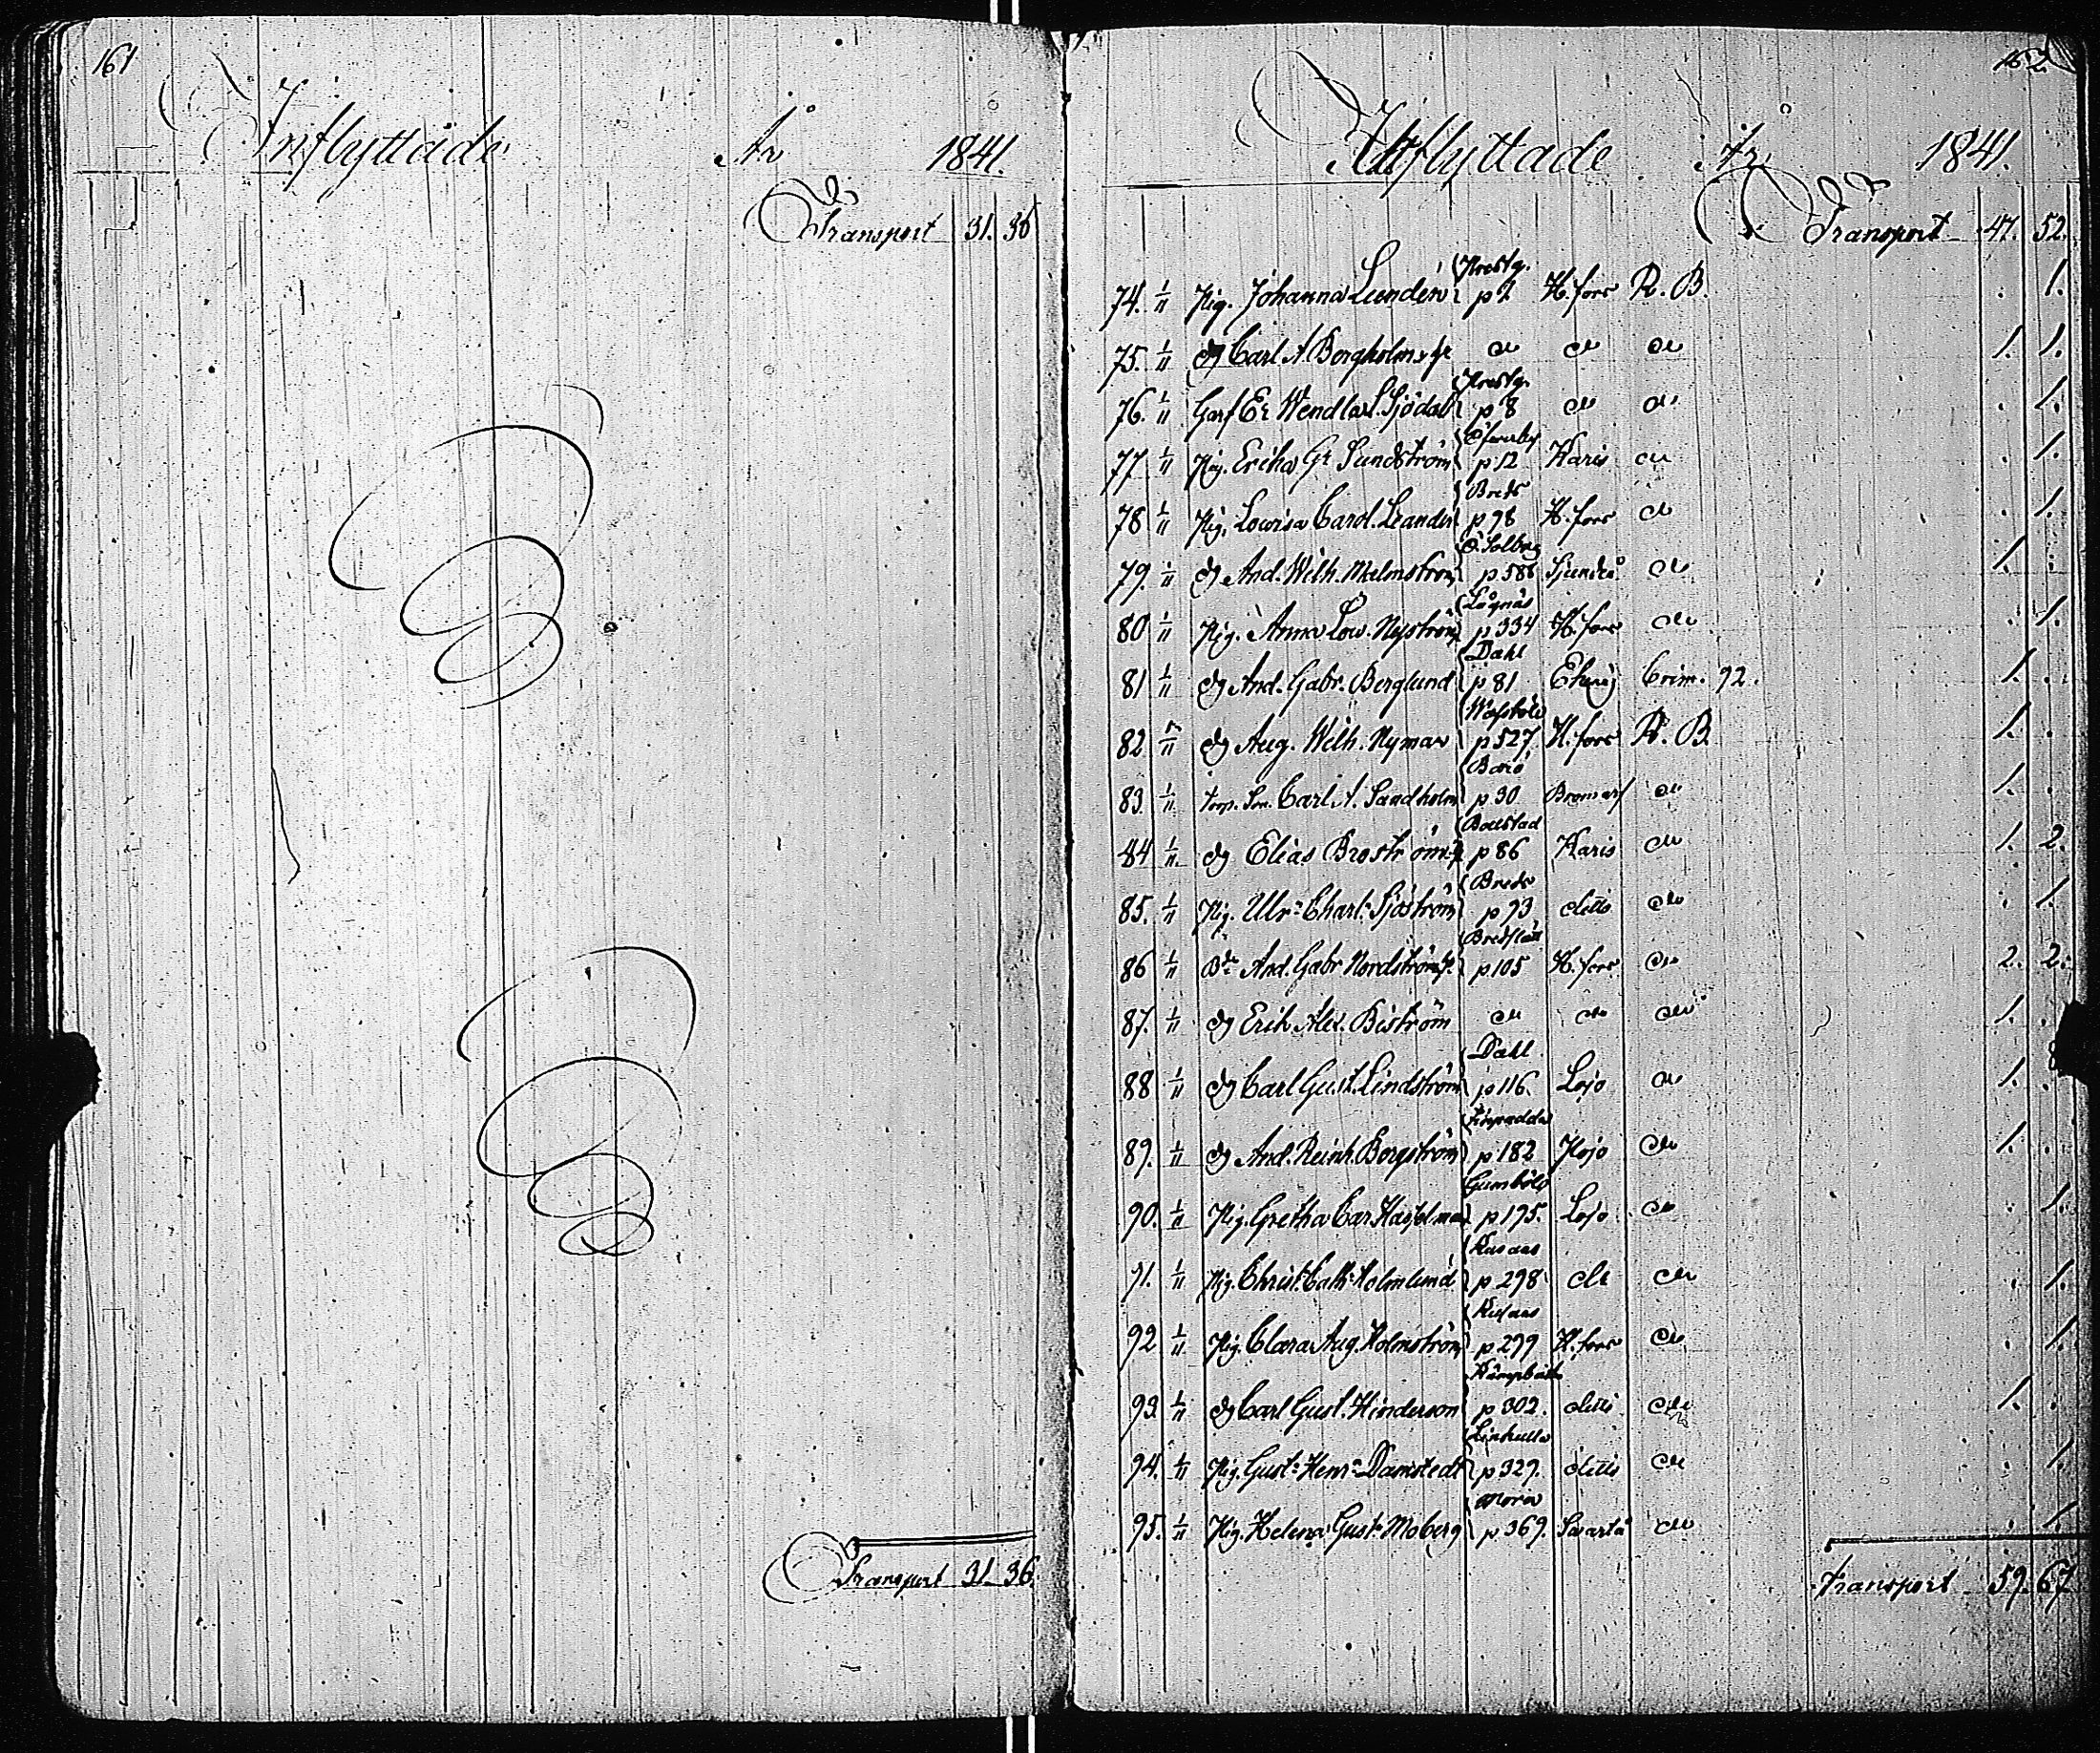 161
Inflyttade År 1841.
Transport 31. 36
Transport 31. 36.
162
Utflyttade År 1841.
Transport 47. 52.
Prestg.
74. 1/11 Pig. Johanna Lunden p 2 H.fors P. B. . 1.
75. 1/11 Dg Carl A. Borgholm do do do 1. 1.
Prestg.
76. 1/11 Wendla Sjödal p 8 do do . 1.
Öfverby
77. 1/11 Pig. Erika Sundström p 12 Karis do . 1.
Breds
78 1/11 Pig. Lovisa Carol. Leander p 98 H.fors do . 1.
Ö. Solberg
79. 1/11 Dg And. Wilh. Malmström p 586 Sjundeå do 1. .
Lågnäs
80 1/11 Pig. Anna Lov. Nyström p 334 H.fors do . 1.
Dahl
81 1/11 Dg And. Gabr. Berglund p 81 Ekenäs Crim. 92. 1. .
82 5/11 Dg Aug. Wilh. Nyman p 527 H.fors P. B. 1. .
Barö
83. 1/11 Carl A. Sandholm p 30 Bromarf do 1. .
Bollstad
84 1/11 Dg Elias Broström p 86 Karis do 1. 2.
Breds
85. 1/11 Pig. Ulr. Charl. Sjöström p 93 ditto do . 1.
Bredslätt
86 1/11 And. Gabr. Nordström p 105 H.fors do 2. 2.
87. 1/11 Dg Erik Alex. Biström do do do 1. .
Dahl
88 1/11 Dg Carl Gust. Lindström p 116. Lojo do 1. .
89. 1/11 Dg And. Reinh. Borgström p 182 Pojo do 1. .
Gumböle
90. 1/11 Pig. Gretha Car. Hasselman p 195. Lojo do . 1.
Kusans
91. 1/11 Pig. Christ. Cath. Holmlund p 298 do do . 1.
Kusans
92 1/11 Pig. Clara Aug. Holmström p 299 H.fors do . 1.
Kämpbäck
93. 1/11 Dg Carl Gust. Hinderson p 302. ditto do 1. .
Linkulla
94. 1/11 Pig. Gust. Henr. Damstedt p 329. ditto do . 1.
Mora
95. 1/11 Pig. Helena Gust. Moberg p 369. Svartå do . 1.
Transport 59. 67